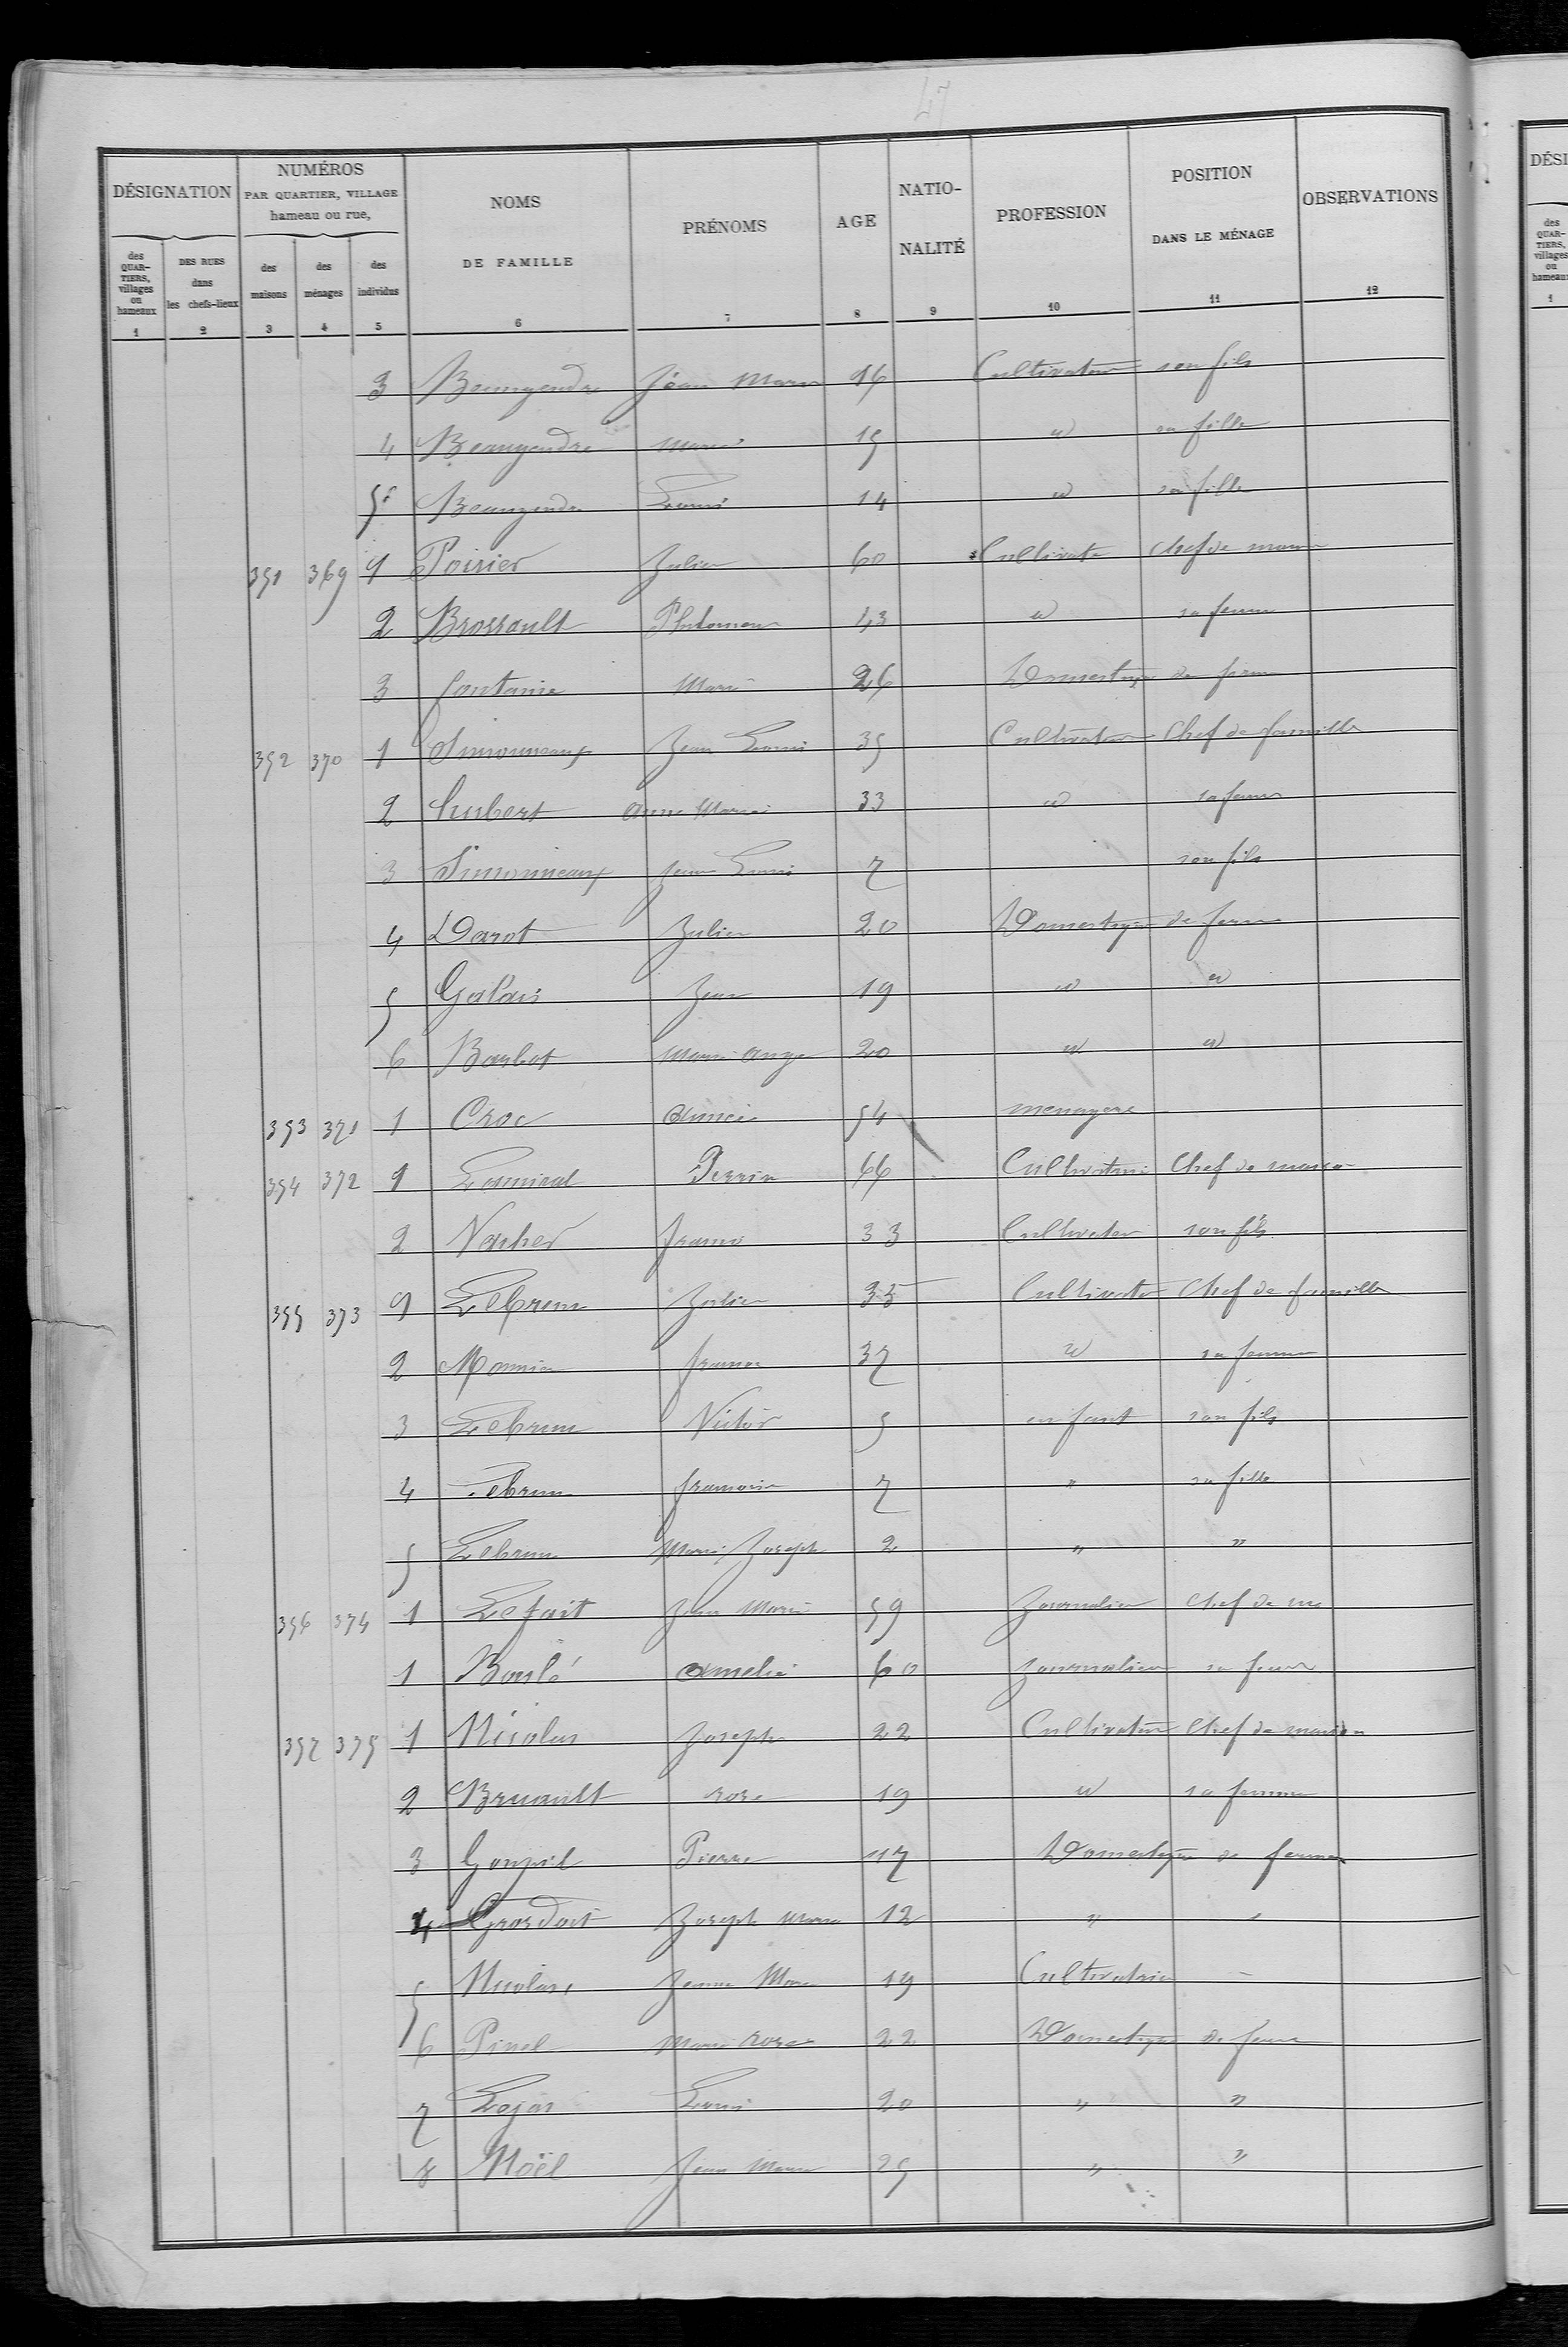 47
DÉSIGNATION NUMÉROS PAR QUARTIER, VILLAGE hameau ou rue, NOMS DE FAMILLE PRÉNOMS AGE NATIO-NALITÉ PROFESSION POSITION DANS LE MÉNAGE OBSERVATIONS
des QUAR-TIERS, villages ou hameaux DES RUES dans les chefs-lieux des maisons des ménages des individus
1 2 3 4 5 6 7 8 9 10 11 12
3 Beaugendre Jean Marie 16 Cultivateur son fils
4 Beaugendre Marie 15 id sa fille
5 Beaugendre Louis 14 id sa fille
391 369 1 Poirier Julien 60 Cultivate Chef de
2 Brossault 43 id sa femme
3 Marie 26 Domestique de ferme
392 370 1 Simonneaux Jean Louis 35 Cultivateur Chef de famille
2 hubert Anne Marie 33 id sa femme
3 Simonneaux Jean Louis 7 son fils
4 Darot Julien 20 Domestique de ferme
5 Galais Jean 19 id id
6 Barbot Marie ange 20 id id
393 371 1 Croc 54 menagere
394 372 1 Perrin 66 Chef de maison
2 33 Cultivateur son fils
395 373 1 Lebrun Julien 35 Cultivate Chef de famille
2 Monnier 37 id sa femme
3 Lebrun Victor 5 enfant son fils
4 Lebrun 7 " sa fille
5 Lebrun Marie Joseph 2 " "
396 374 1 Lefait Jean Marie 59 Journalier Chef de
1 Boulé Amelie 60 Journaliere sa femme
397 375 1 Nicolas Joseph 22 Cultivateur Chef de maison
2 Bruault rose 19 id sa femme
3 Goupil Pierre 17 Domestique de ferme
4 Joseph Marie 12 " "
5 Nicolas Jeanne Marie 19 Cultivatrice –
6 Pinel Marie rose 22 Domestique de ferme
7 Louis 20 " "
8 Noël Jean Marie 25 " "
DÉSI
des QUAR-TIERS, villages ou hameaux
1